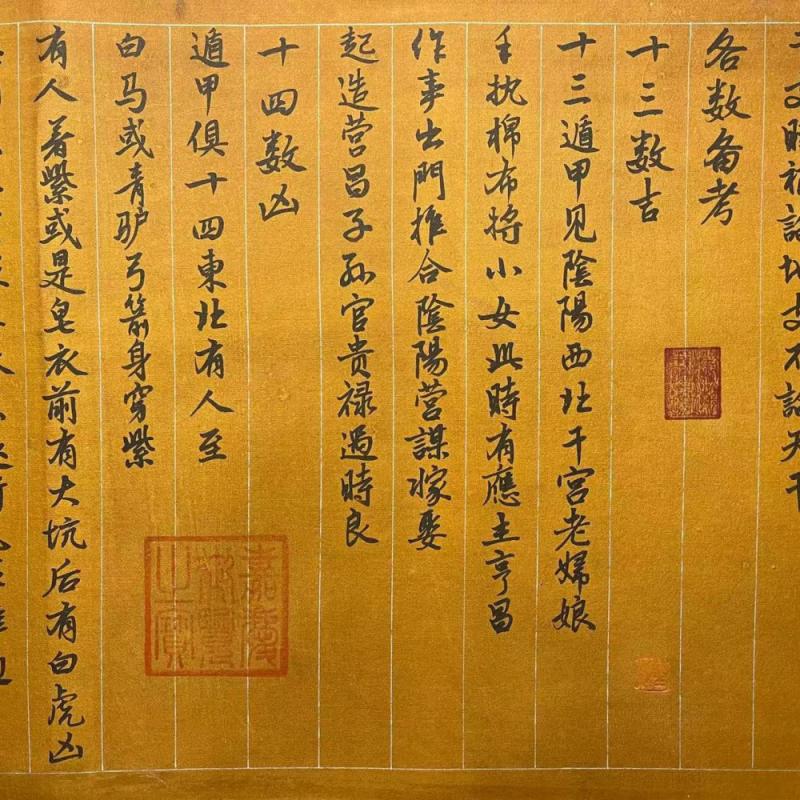 各数备考
十三数吉
十三遁甲见陰陽西北干宫老婦娘
手执棉布将小女此時有應主亨昌
作事出門推合陰陽营謀嫁娶
起造营昌子孙官贵禄過時良
十四数凶
遁甲俱十四東北有人至
白马或青驴弓箭身穿紫
有人着紫或是皂衣前有大坑后有白虎凶
嘉慶御覽之寶